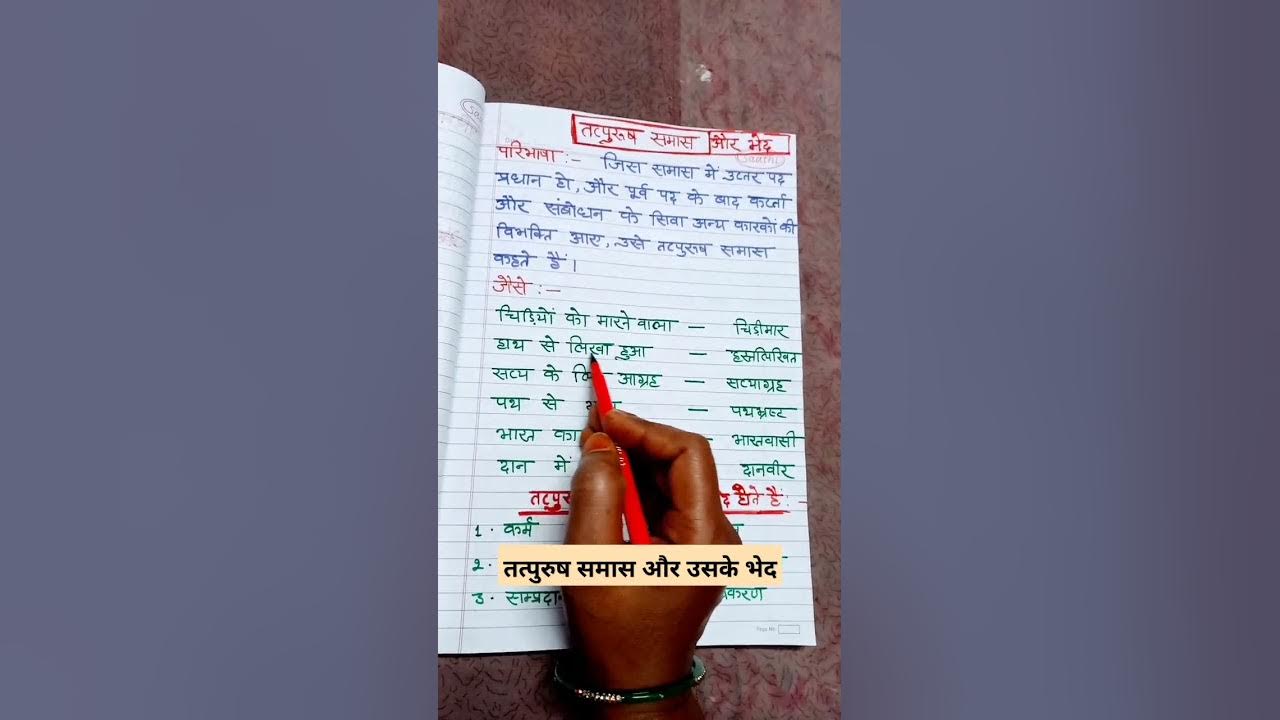 तत्पुरूष समास और भेद
saathi
परिभाषा :- जिस समास में उत्तर पद
प्रधान हो, और पूर्व पद के बाद कर्त्ता
और संबोधन के सिवा अन्य कारकों की
विभक्ति आए, उसे तत्पुरूष समास
कहते हैं।
जैसे :-
चिड़ियों को मारने वाला - चिडीमार
हाथ से लिखा हुआ - हस्तलिखित
सत्य के आग्रह - सत्याग्रह
पथ से - पथभ्रष्ट
भारत का - भारतवासी
दान में दानवीर
होते हैं : -
1. कर्म
2.
तत्पुरुष समास और उसके भेद
3.
Page No.